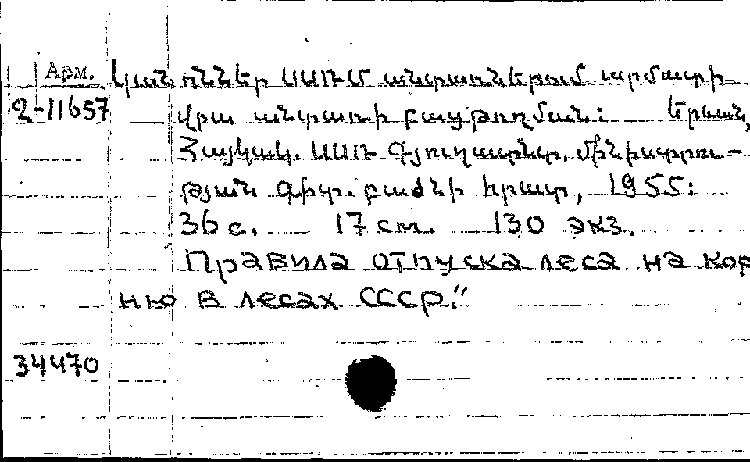 Арм. Կանոններ ՍՍՌՄ անտառներում արմատի
2-11657 վրա անտառի բաց թողման: Երևան,
Հայկակ. ՍՍՌ Գյուղատնտ. մինիստրու-
թյան գիտ. բաժնի հրատ, 1955:
36 с. 17 см. 130 экз.
Правила отпуска леса на кор
ню в лесах СССР."
34470